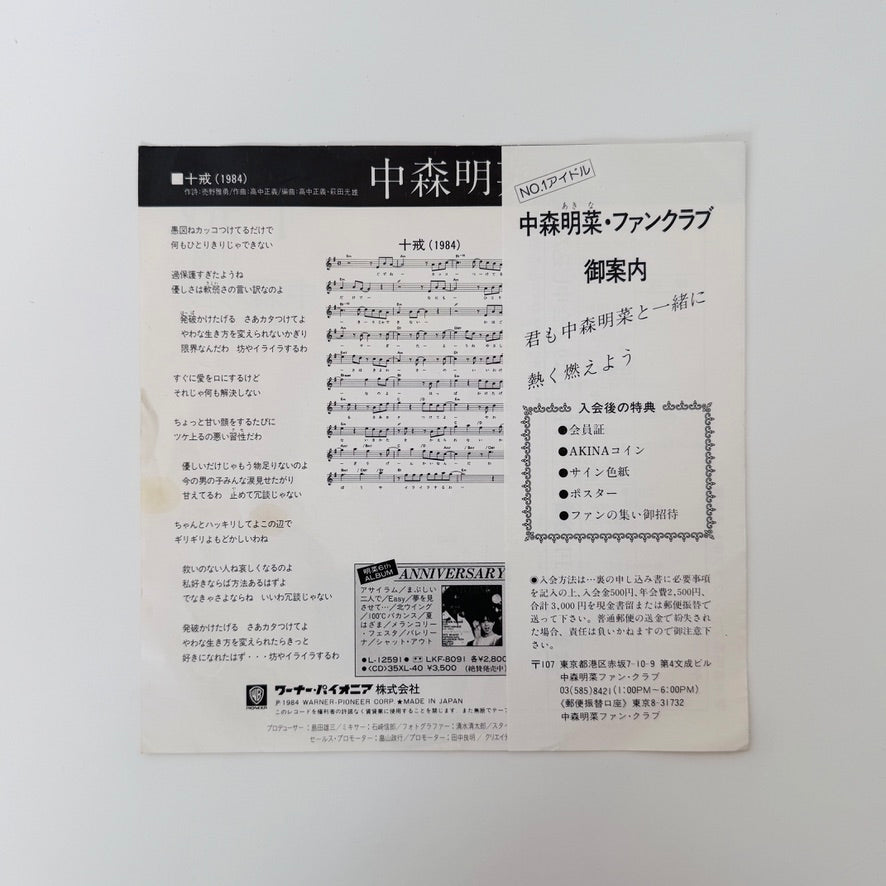 ■十戒(1984)
作詩:売野雅勇/作曲:高中正義/編曲:高中正義・萩田光雄
中森明菜
愚図ねカッコつけてるだけで
何もひとりきりじゃできない
過保護すぎたようね
優しさは軟弱さの言い訳なのよ
発破かけたげる さあカタつけてよ
やわな生き方を変えられないかぎり
限界なんだわ 坊やイライラするわ
すぐに愛を口にするけど
それじゃ何も解決しない
ちょっと甘い顔をするたびに
ツケ上るの悪い習性だわ
優しいだけじゃもう物足りないのよ
今の男の子みんな涙見せたがり
甘えてるわ 止めて冗談じゃない
ちゃんとハッキリしてよこの辺で
ギリギリよもどかしいわね
救いのない人ね哀しくなるのよ
私好きならば方法あるはずよ
でなきゃさよならね いいわ冗談じゃない
発破かけたげる さあカタつけてよ
やわな生き方を変えられたらきっと
好きになれたはず・・・坊やイライラするわ
十戒(1984)
明菜6th
ALBUM
ANNIVERSARY
アサイラム/まぶしい
二人で/Easy/夢を見
させて…/北ウイング
/100℃バカンス/夏
はざま/メランコリー
・フェスタ/バレリー
ナ/シャット・アウト
●L-12591● LKF-8091 各¥2,800
●〈CD〉35XL-40 ¥3,500 (絶賛発売中)
PIONEER
ワーナー・パイオニア株式会社
Ⓟ1984 WARNER-PIONEER CORP. ★MADE IN JAPAN
このレコードを権利者の許諾なく賃貸業に使用することを禁じます また無断でテープ
プロデューサー:島田雄三/ミキサー:石崎信郎/フォトグラファー:清水清太郎/スタイ
セールス・プロモーター:畠山政行/プロモーター:田中良明/クリエイテ
NO.1アイドル
あきな
中森明菜・ファンクラブ
御案内
君も中森明菜と一緒に
熱く燃えよう
入会後の特典
●会員証
●AKINAコイン
●サイン色紙
●ポスター
●ファンの集い御招待
●入会方法は…裏の申し込み書に必要事項
を記入の上、入会金500円、年会費2,500円、
合計3,000円を現金書留または郵便振替で
送って下さい。普通郵便の送金で紛失され
た場合、責任は負いかねますので御注意下
さい。
〒107 東京都港区赤坂7-10-9 第4文成ビル
中森明菜ファン・クラブ
03(585)8421(1:00PM~6:00PM)
〈郵便振替口座〉東京8-31732
中森明菜ファン・クラブ